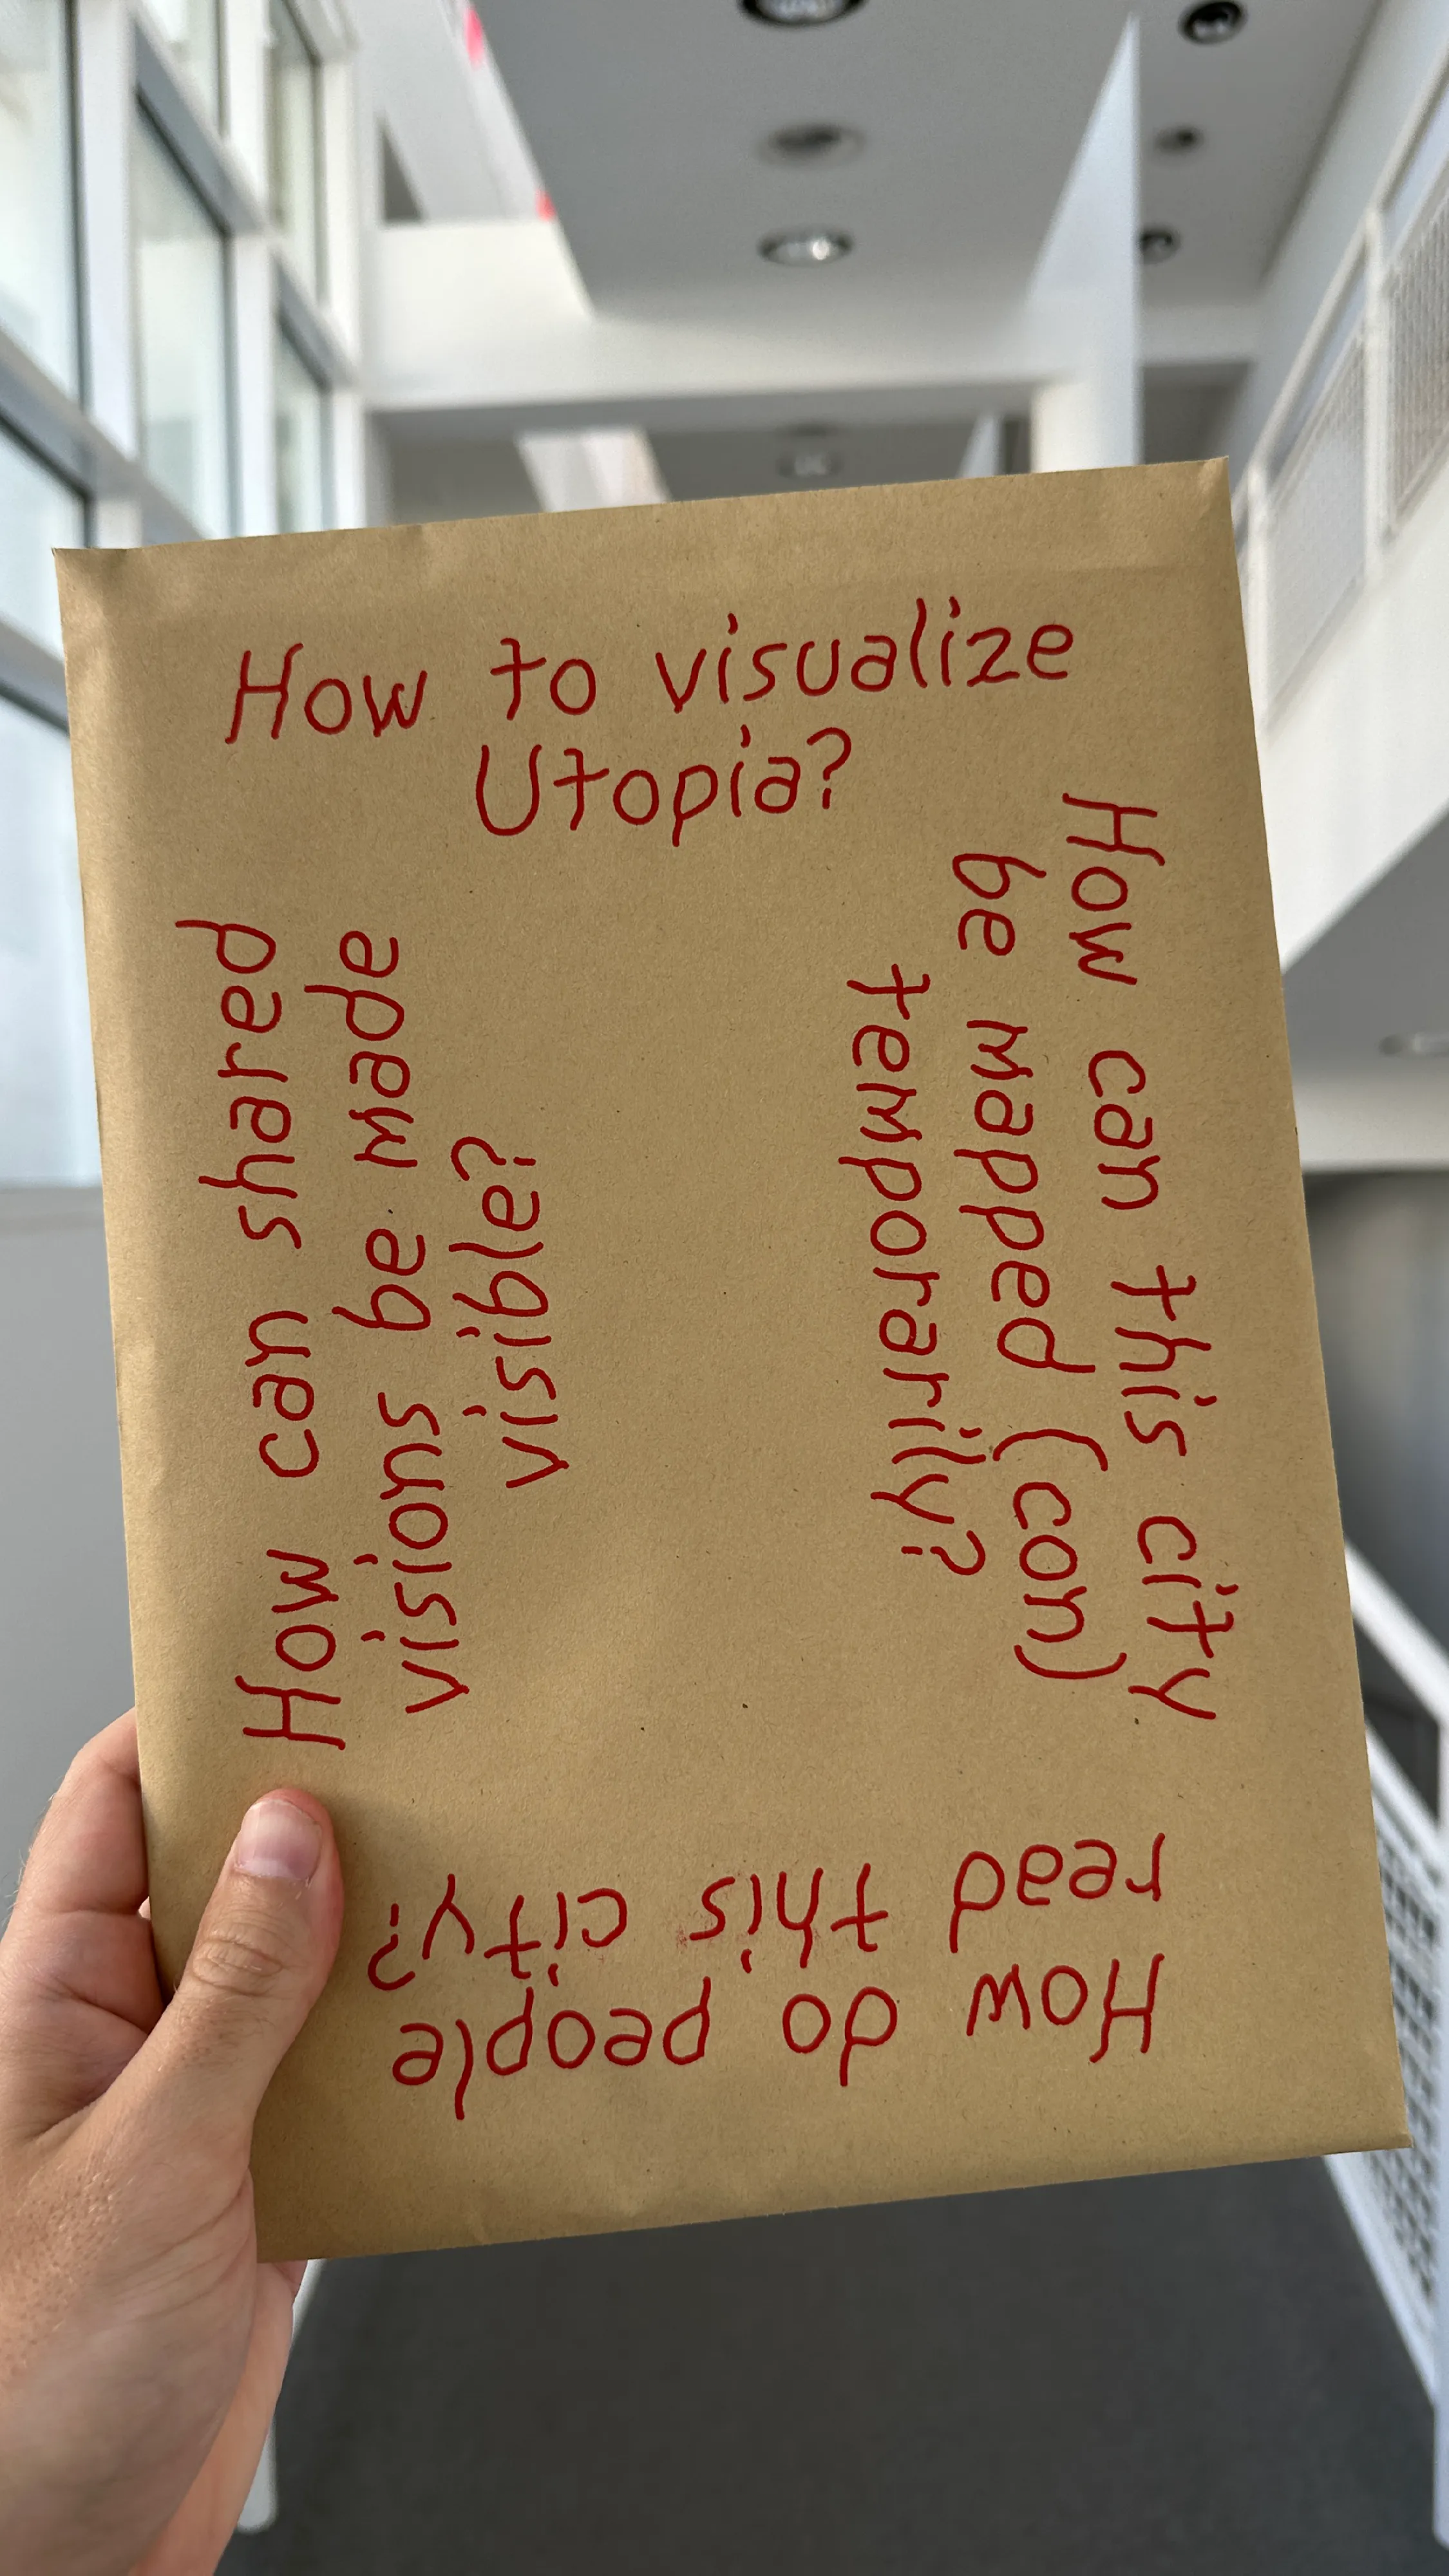 How to visualize
Utopia?
How can this city
be mapped (con)
temporarily?
How do people
read this city?
How can shared
visions be made
visible?